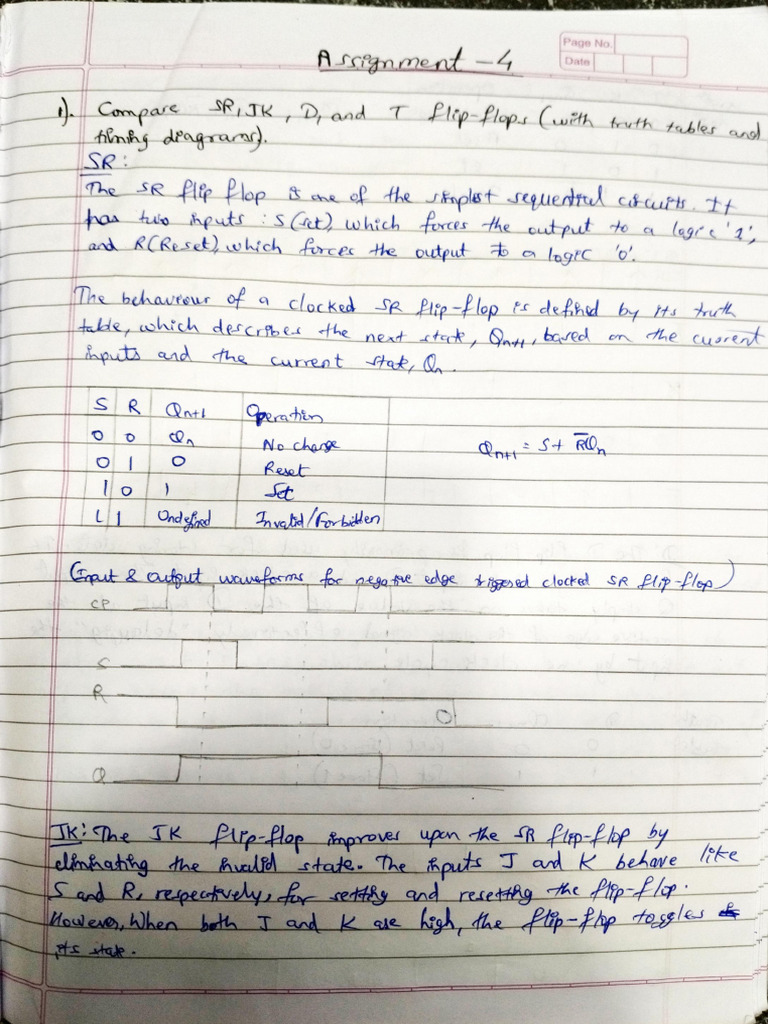 Page No.
Date
Assignment - 4
1). Compare SR, JK, D, and T flip-flops (with truth tables and
timing diagrams).
SR:
The SR flip flop is one of the simplest sequential circuits. It
has two inputs : S (set), which forces the output to a logic '1',
and R (Reset), which forces the output to a logic '0'.
The behaviour of a clocked SR flip-flop is defined by its truth
table, which describes the next state, Qn+1, based on the current
inputs and the current state, Qn.
S R Qn+1 Operation
0 0 Qn No change
0 1 0 Reset
1 0 1 Set
1 1 Undefined Invalid/Forbidden
Qn+1 = S + R̅Qn
(Input & output waveforms for negative edge triggered clocked SR flip-flop)
CP
S
R
Q
JK: The JK flip-flop improves upon the SR flip-flop by
eliminating the invalid state. The inputs J and K behave like
S and R, respectively, for setting and resetting the flip-flop.
However, When both J and K are high, the flip-flop toggles
its state.